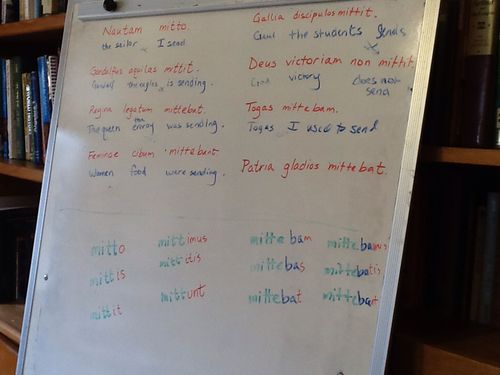 Nautam mitto.
the sailor I send
Gandalfus aquilas mittit.
Gandalf the eagles is sending.
Regina legatum mittebat.
The queen the envoy was sending.
Feminae cibum mittebant
Women food were sending.
Gallia discipulos mittit.
Gaul the students sends
Deus victoriam non mittit
God victory does not
send
Togas mittebam.
Togas I used to send
Patria gladios mittebat.
mitto mittimus
mittis mittitis
mittit mittunt
mittebam mittebamus
mittebas mittebatis
mittebat